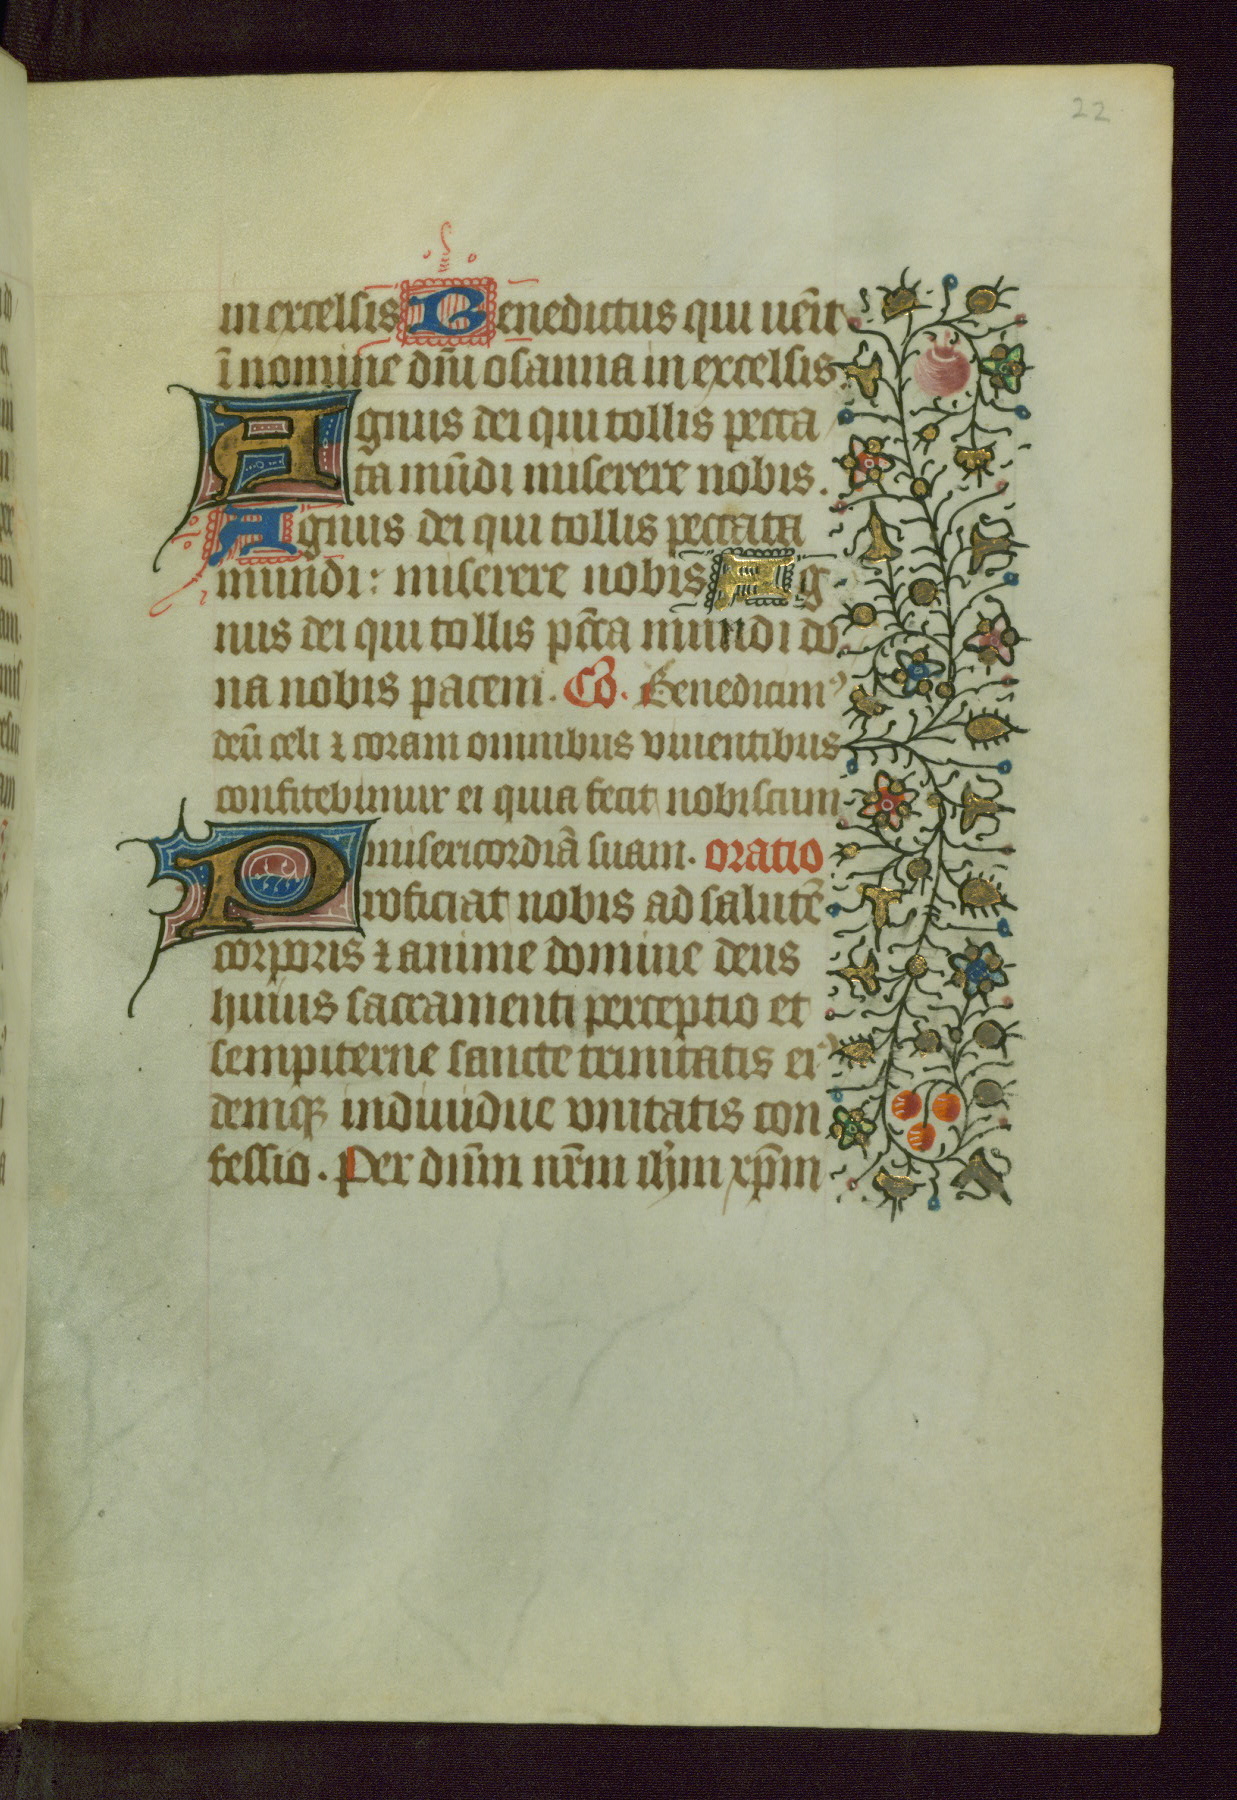 22
in excelsis Benedictus qui uēit
ī nomine dn̄i osanna in excelsis.
Agnus dei qui tollis pecca
ta mūdi miserere nobis.
Agnus dei qui tollis peccata
mundi: miserere nobis Ag
nus dei qui tollis pc̄ca mundi do
na nobis pacem. Cō. Benedicimꝰ
deū celi ⁊ coram omnibus viuentibus
confitebimur ei quia fecit nobiscum
misericordiā suam. oratio
Proficiat nobis ad salutē
corporis ⁊ anime domine deus
huius sacramenti perceptio et
sempiterne sancte trinitatis eiꝰ
demqꝫ indiuidue vnitatis con
fessio. Per dn̄m nr̄m ih̄m xp̄m